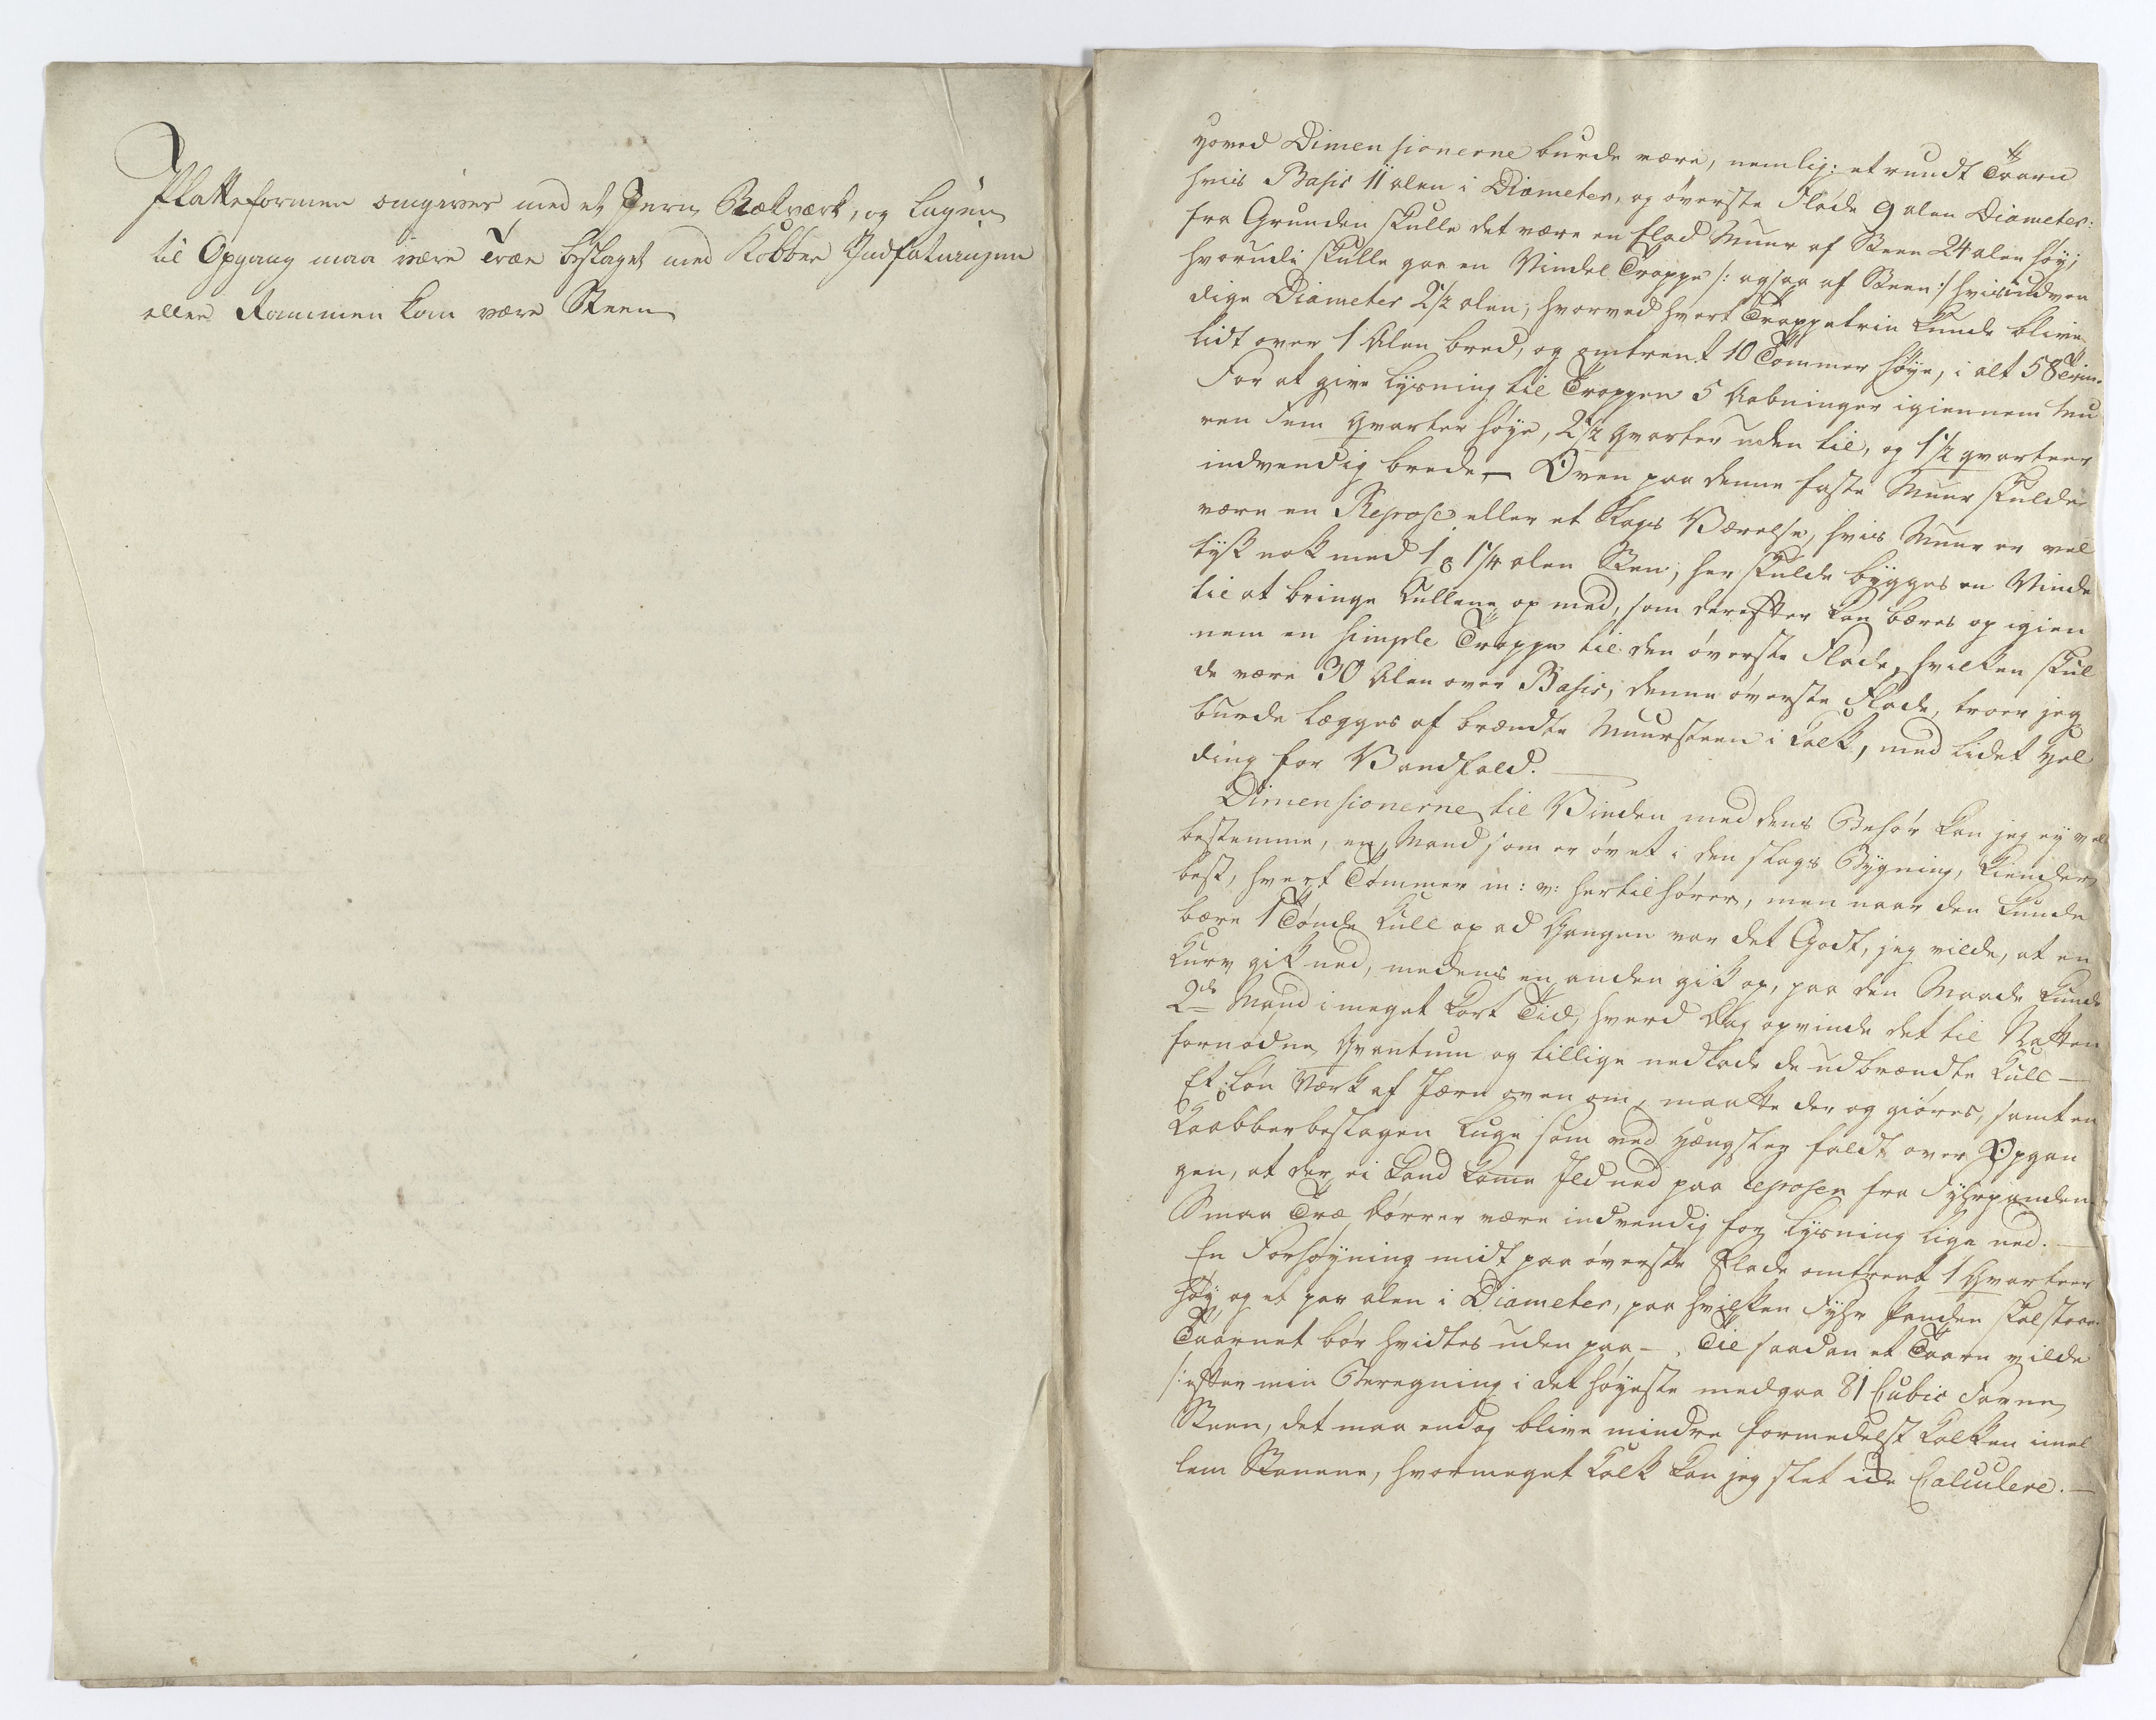 Platteformen omgives med et Jern Rækværk, og lugen
til Opgang maa være Træe beslaget med Kobber Indfatningen
eller Rammen kan være Steen
hoved Dimensionerne burde være, nemlig: et rundt Taarn
hvis Basis 11 alen i Diameter, og øverste Flade 9 alen Diameter:
fra Grunden skulle det være en flad Muur af Steen 24 alen høy;
hvorudi skulle gaa en Vindel Trappe /: ogsaa af Steen :/ hvis udven
dige Diameter 2½ alen, hvorved hvert Trappetrin kunde blive
lidt over 1 Alen bred, og omtrent 10 Tommer høye, i alt 58 Trin.
For at give Lysning til Trappen 5 Aabninger igiennem Mu
ren Fem qvarter høye, 2½ qvarter uden til, og 1½ qvarteer
indvendig brede. — Oven paa denne faste Muur skulde
være en Repose eller et Slags Værelse, hvis Muur er vel
tyk nok med 1 a 1¼ alen Sten; her skulde bygges en Vinde
til at bringe Kullene op med, som derefter kan bæres op igien
nem en simple Trappe til den øverste Flade, hvilken skul
de være 30 Alen over Basis; denne øverste Flade, troer jeg
burde lægges af brændte Muursteen i Kalk, med lidet Hel
ding for Vandfald. —
Dimensionerne til Vinden med dens Behør kan jeg ey vel
bestemme, en Mand som er øvet i den slags Bygning, kiender
best, hvert Tømmer m: v: hertil hører, men naar den kunde
bære 1 Tønde Kull op ad Gangen var det Godt, jeg vilde, at en
Kurv gik ned, medens en anden gik op, paa den Maade kunde
2de Mand i meget kort Tid, hverd Dag opvinde det til Natten
fornødne Qvantum og tillige nedlade de udbrændte Kull —
Et Værk af Jærn oven om, maatte der og giøres, samt en
Kaabberbeslagen Luge som ved Hængsler faldt over Opgan
gen, at der ei kand kome Ild ned paa reposen fra Fyhrpanden
Smaa Træ Dørrer være indvendig for Lysning lige ned. —
En Forhøyning midt paa øverste Flade omtrent 1 Qvarteer
høy, og et par alen i Diameter, paa hvilken Fyhr Panden skal staae.
Taarnet bør hvidtes uden paa — . Til saadan et Taarn vilde
/: efter min Beregning i det høyeste medgaa 81 Cubic Favne
Steen, det maa endog blive mindre formedelst Kalken imel
lem Stenene, hvormeget Kalk kan jeg slet icke Calculere. —